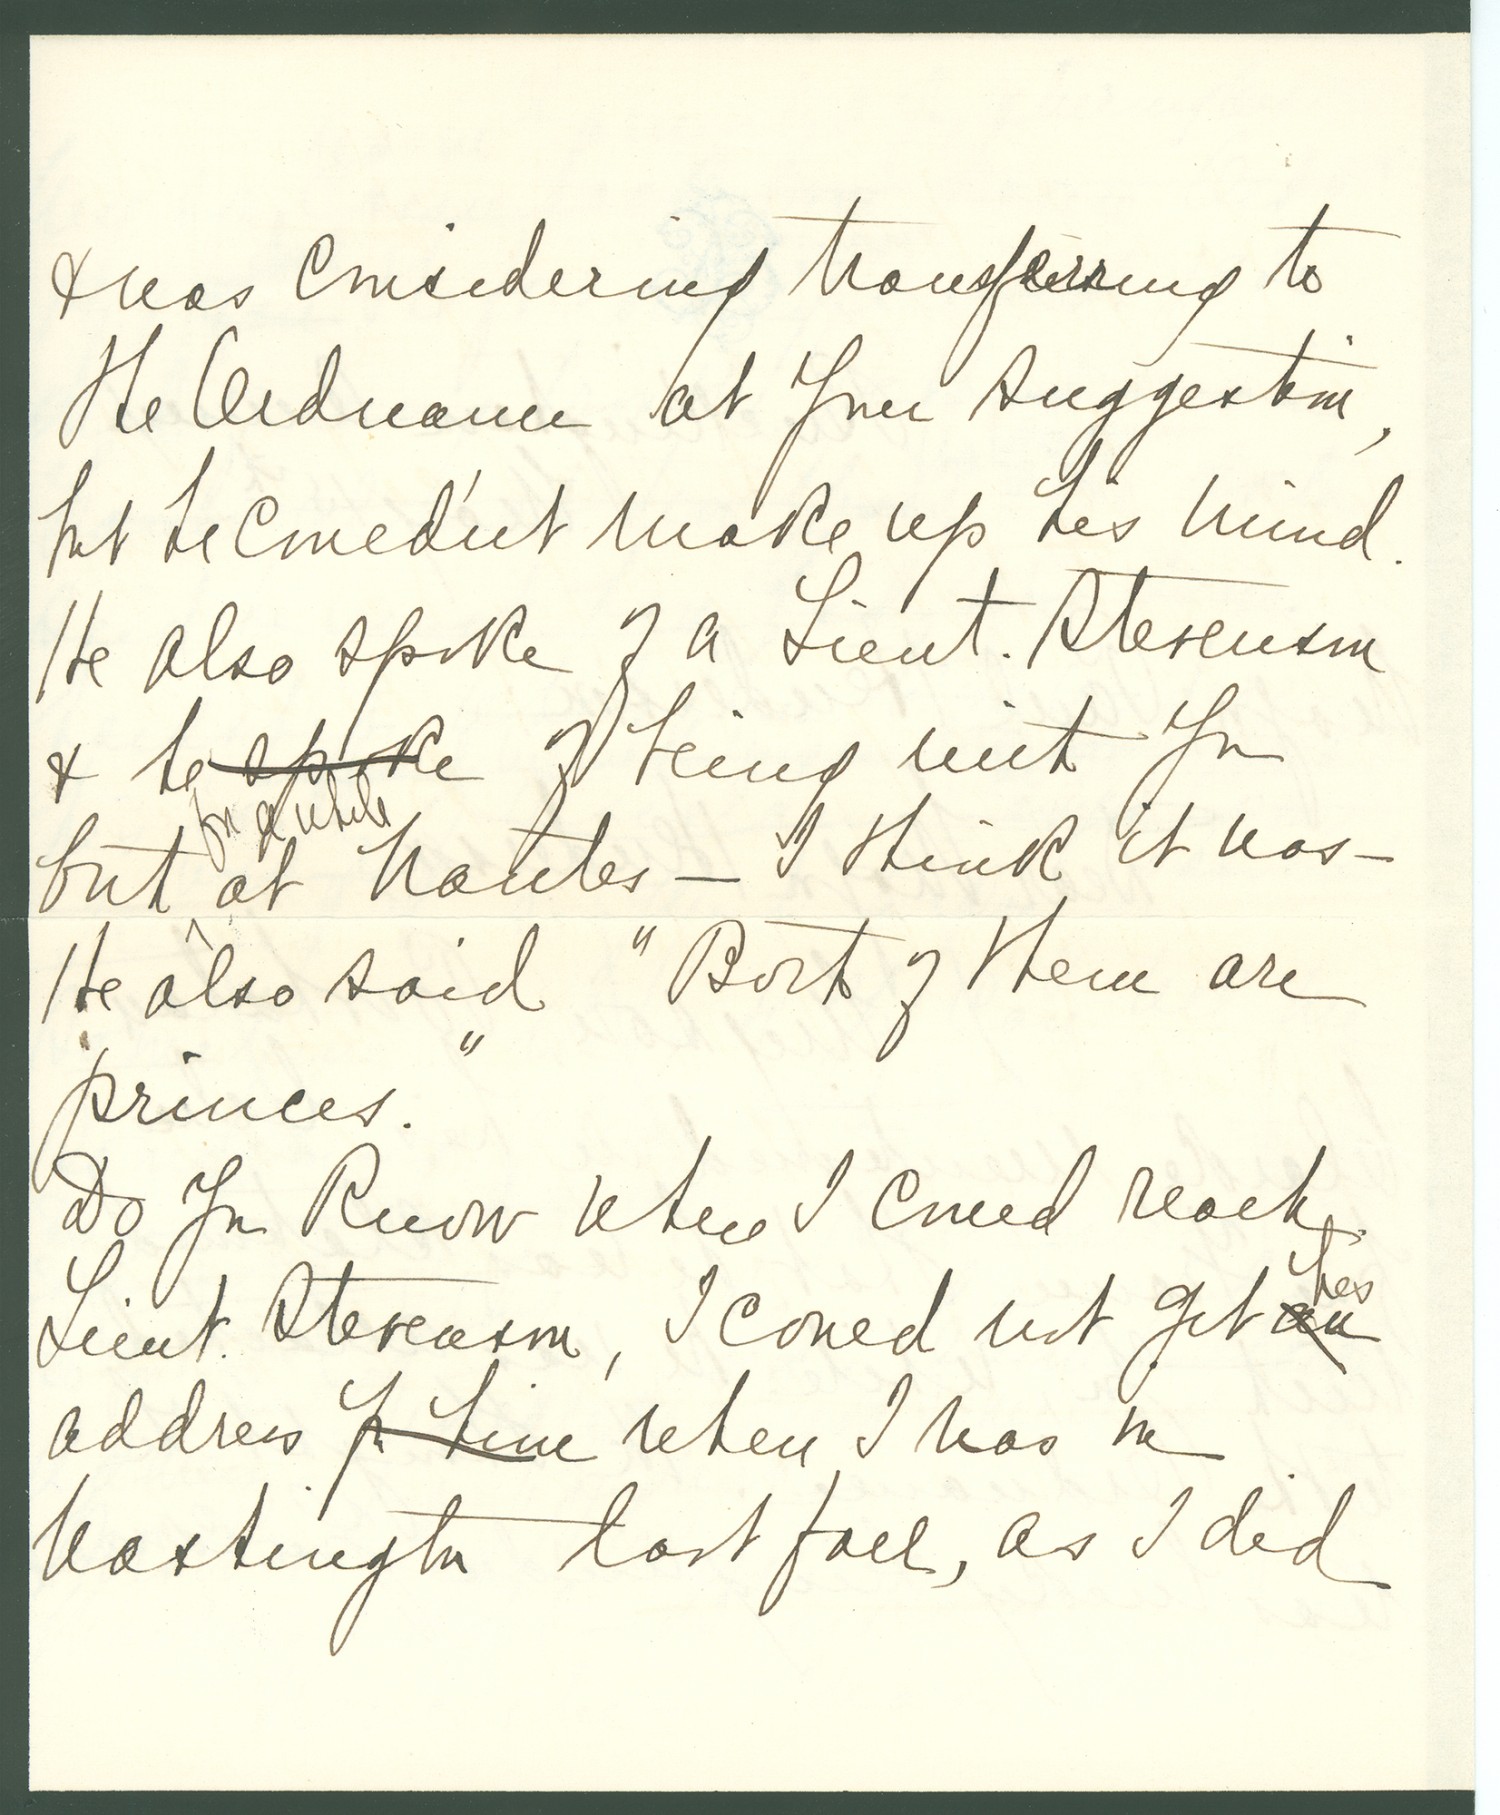 & was considering transferring to
the Ordnance at your suggestion,
but he could'nt make up his mind.
He also spoke of a Lieut. Stevenson
& he spoke of being with you
for a while
but at Nantes — I think it was —
He also said "Both of them are
princes."
Do you know where I could reach
Lieut. Stevenson, I could not get an his
address for him when I was in
Washington last fall, as I did